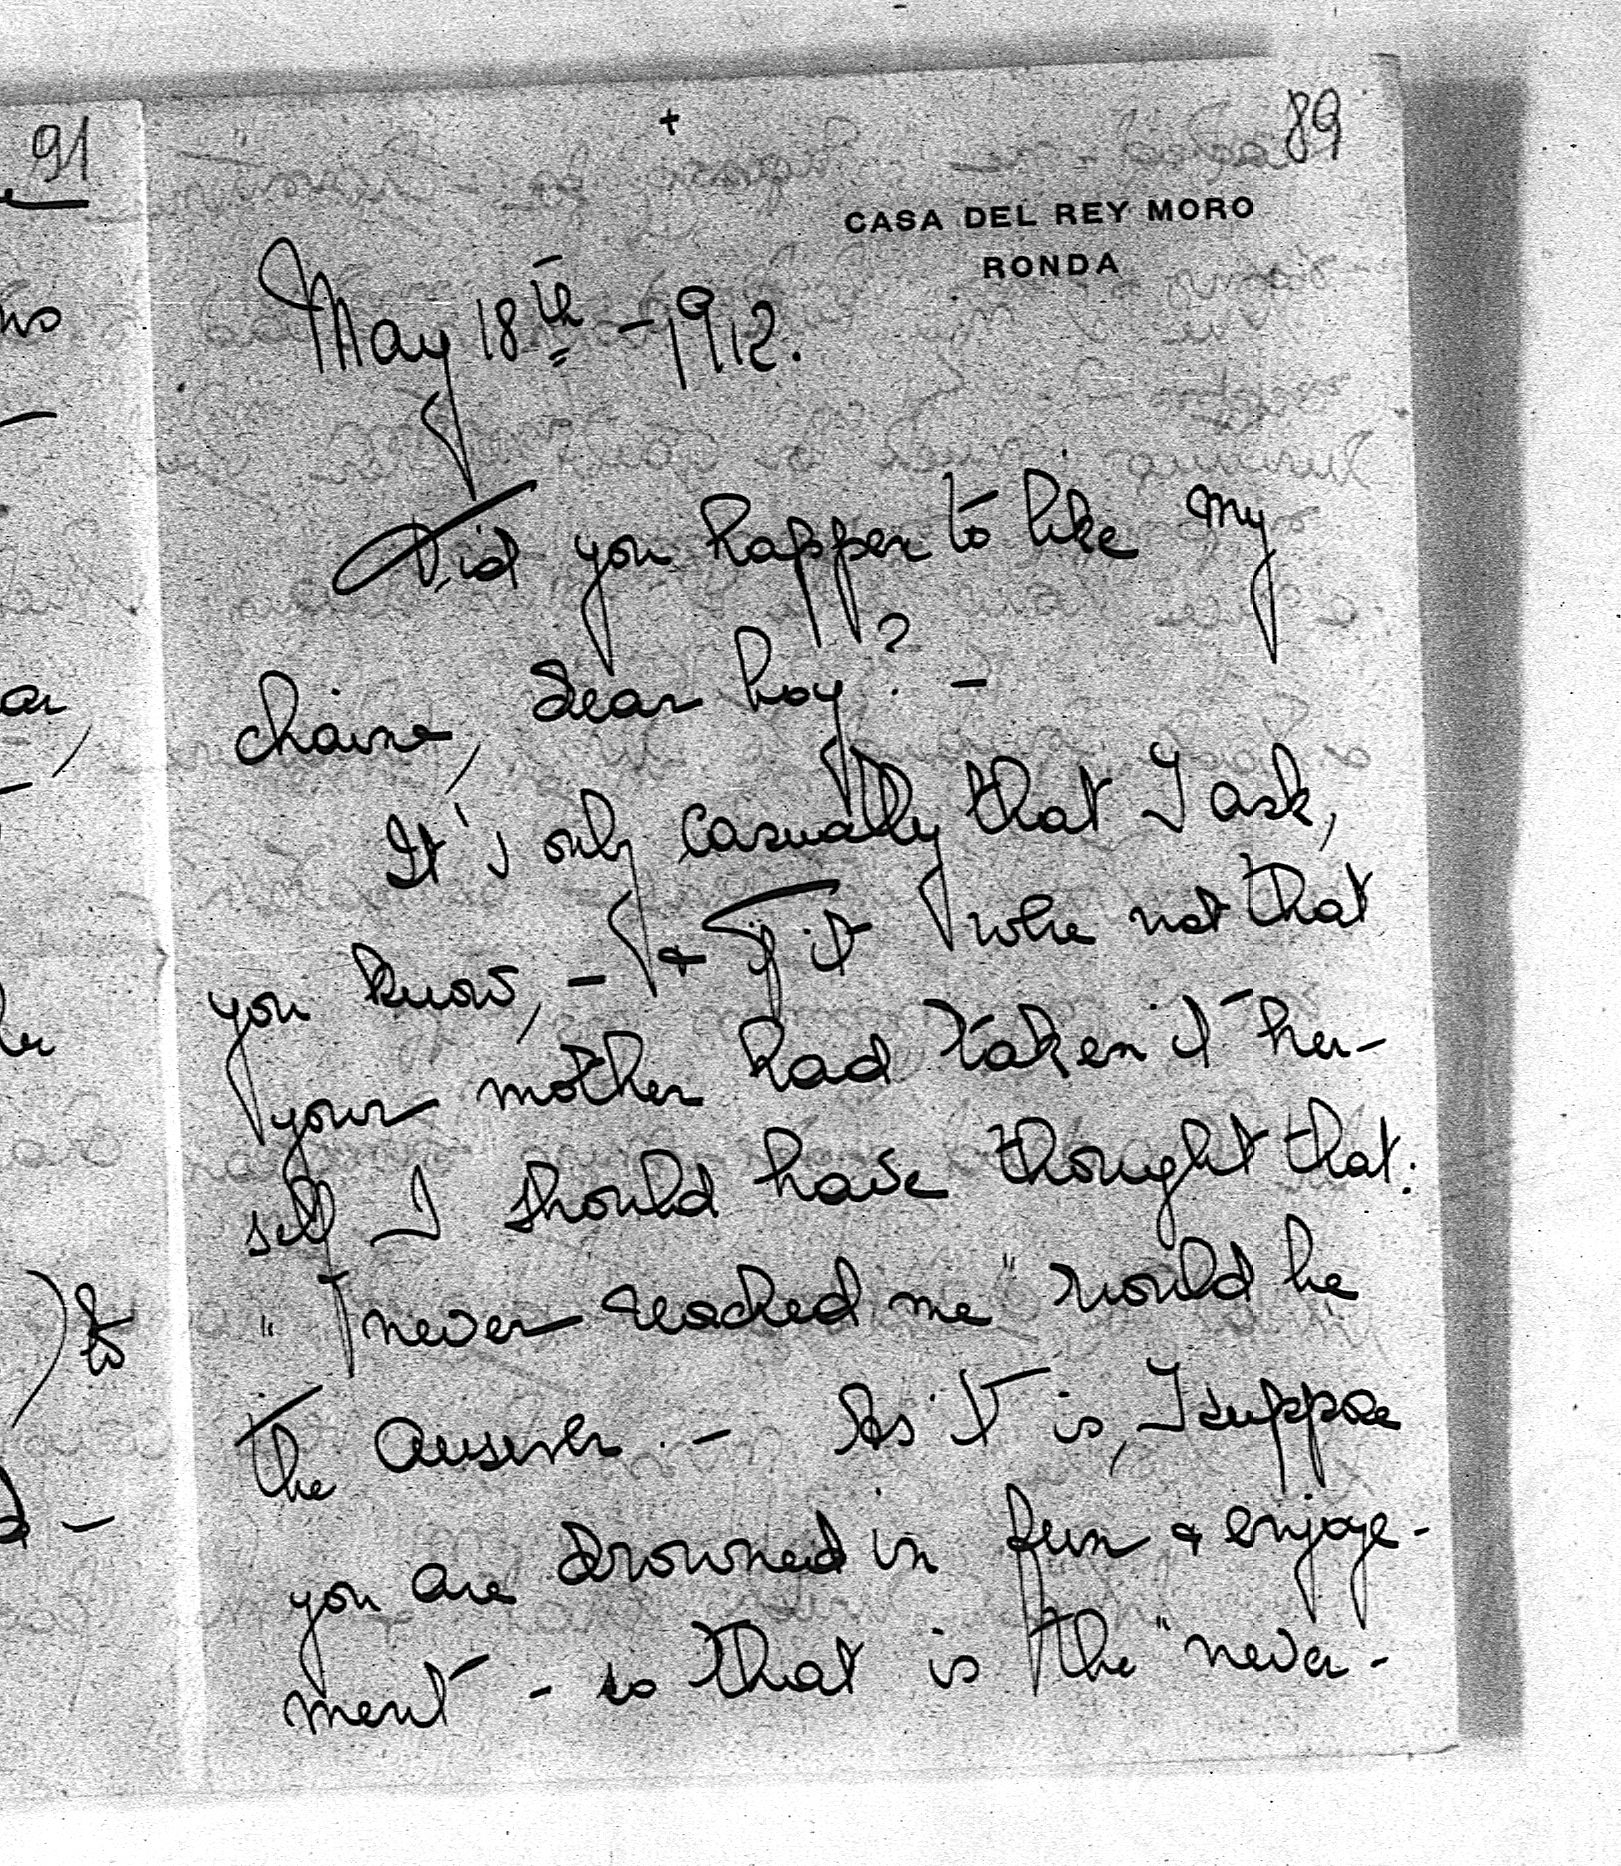 91
89
+
CASA DEL REY MORO
RONDA
May 18th - 1912.
Did you happen to like my
chaine, dear boy? -
It's only casually that I ask,
you know, - & if it were not that
your mother had taken it her-
self I should have thought that.
"never reached me" would be
the answer. - As it is, I suppose
you are drowned in fun & enjoye-
ment - so that is the "never-
to